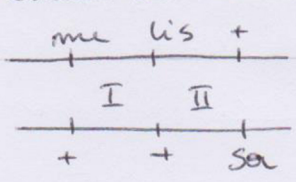 me lis +
I II
+ + Ser